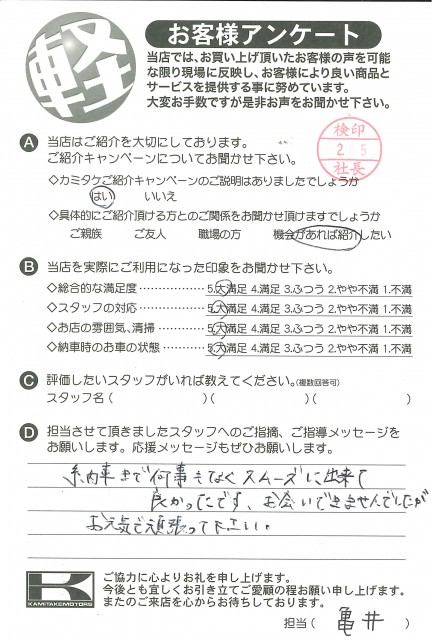 軽
お客様アンケート
当店では、お買い上げ頂いたお客様の声を可能
な限り現場に反映し、お客様により良い商品と
サービスを提供する事に努めています。
大変お手数ですが是非お声をお聞かせ下さい。
A 当店はご紹介を大切にしております。
ご紹介キャンペーンについてお聞かせ下さい。
検印
2 5
社長
◇カミタケご紹介キャンペーンのご説明はありましたでしょうか
はい いいえ
◇具体的にご紹介頂ける方とのご関係をお聞かせ頂けますでしょうか
ご親族 ご友人 職場の方 機会があれば紹介したい
B 当店を実際にご利用になった印象をお聞かせ下さい。
◇総合的な満足度 5.大満足 4.満足 3.ふつう 2.やや不満 1.不満
◇スタッフの対応 5.大満足 4.満足 3.ふつう 2.やや不満 1.不満
◇お店の雰囲気、清掃 5.大満足 4.満足 3.ふつう 2.やや不満 1.不満
◇納車時のお車の状態 5.大満足 4.満足 3.ふつう 2.やや不満 1.不満
C 評価したいスタッフがいれば教えてください。(複数回答可)
スタッフ名( )( )( )
D 担当させて頂きましたスタッフへのご指摘、ご指導メッセージを
お願いします。応援メッセージもぜひお願いします。
納車まで何事もなくスムーズに出来て
良かったです、お会いできませんでしたが
お元気で頑張って下さい。
K
KAMITAKEMOTORS
ご協力に心よりお礼を申し上げます。
今後とも宜しくお引き立てご愛顧の程お願い申し上げます。
またのご来店を心からお待ちしております。
担当( 亀井 )